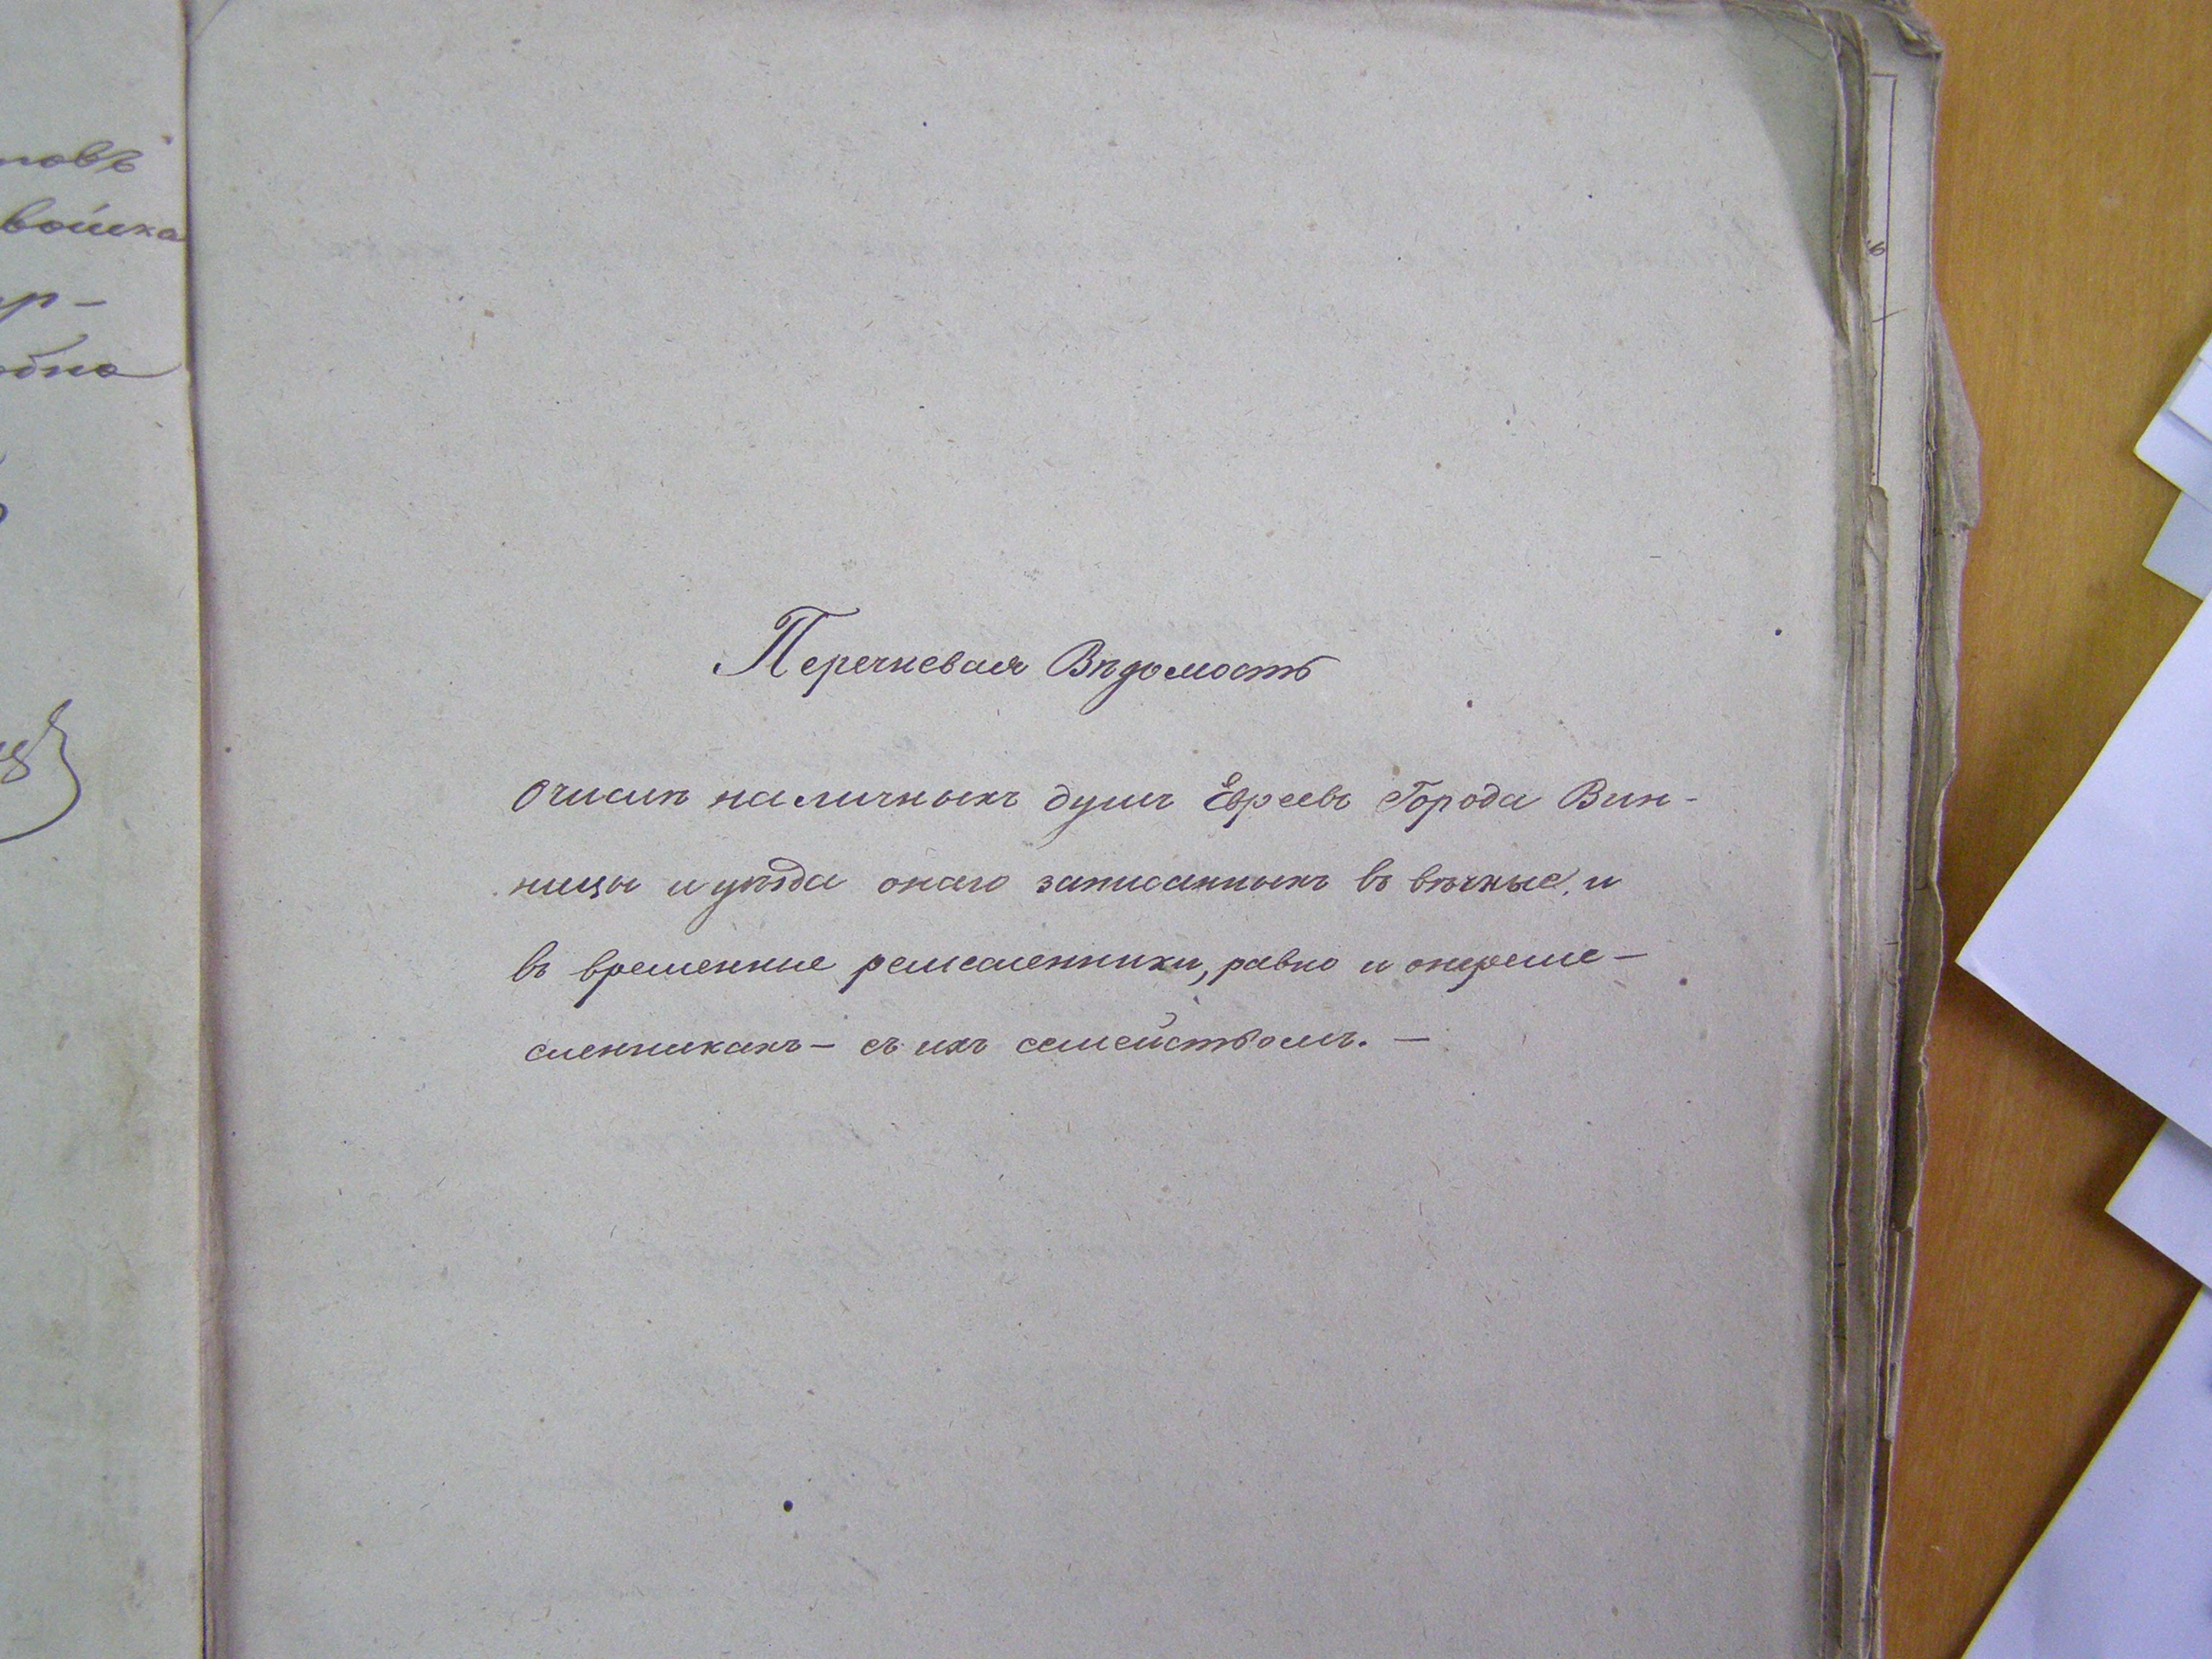 повъ
войска
ир-
одна
Перечневая Вѣдомость
Очислѣ наличныхъ душъ Евреевъ Города Вин-
ницы и уѣзда онаго записанныхъ въ вѣчные, и
въ временные ремесленники, равно и онеремe-
сленникахъ - съ ихъ семействомъ. -